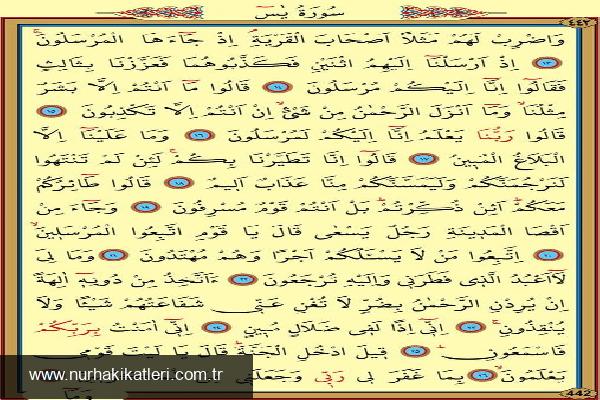 سُورَةُ يٰسٓ
٤٤٢
وَاضْرِبْ لَهُمْ مَثَلًا اَصْحَابَ الْقَرْيَةِۢ اِذْ جَٓاءَهَا الْمُرْسَلُونَۚ
﴿١٣﴾ اِذْ اَرْسَلْنَٓا اِلَيْهِمُ اثْنَيْنِ فَكَذَّبُوهُمَا فَعَزَّزْنَا بِثَالِثٍ
فَقَالُٓوا اِنَّٓا اِلَيْكُمْ مُرْسَلُونَ ﴿١٤﴾ قَالُوا مَٓا اَنْتُمْ اِلَّا بَشَرٌ
مِثْلُنَاۙ وَمَٓا اَنْزَلَ الرَّحْمٰنُ مِنْ شَيْءٍۙ اِنْ اَنْتُمْ اِلَّا تَكْذِبُونَ ﴿١٥﴾
قَالُوا رَبُّنَا يَعْلَمُ اِنَّٓا اِلَيْكُمْ لَمُرْسَلُونَ ﴿١٦﴾ وَمَا عَلَيْنَٓا اِلَّا
الْبَلَاغُ الْمُبِينُ ﴿١٧﴾ قَالُٓوا اِنَّا تَطَيَّرْنَا بِكُمْۚ لَئِنْ لَمْ تَنْتَهُوا
لَنَرْجُمَنَّكُمْ وَلَيَمَسَّنَّكُمْ مِنَّا عَذَابٌ اَلِيمٌ ﴿١٨﴾ قَالُوا طَٓائِرُكُمْ
مَعَكُمْۜ اَئِنْ ذُكِّرْتُمْۜ بَلْ اَنْتُمْ قَوْمٌ مُسْرِفُونَ ﴿١٩﴾ وَجَٓاءَ مِنْ
اَقْصَا الْمَدِينَةِ رَجُلٌ يَسْعٰى قَالَ يَا قَوْمِ اتَّبِعُوا الْمُرْسَلِينَۙ
﴿٢٠﴾ اِتَّبِعُوا مَنْ لَا يَسْـَٔلُكُمْ اَجْرًا وَهُمْ مُهْتَدُونَ ﴿٢١﴾ وَمَا لِيَ
لَٓا اَعْبُدُ الَّذِي فَطَرَنِي وَاِلَيْهِ تُرْجَعُونَ ﴿٢٢﴾ ءَاَتَّخِذُ مِنْ دُونِهِٓ اٰلِهَةً
اِنْ يُرِدْنِ الرَّحْمٰنُ بِضُرٍّ لَا تُغْنِ عَنِّي شَفَاعَتُهُمْ شَيْـًٔا وَلَا
يُنْقِذُونِۚ ﴿٢٣﴾ اِنِّٓي اِذًا لَفِي ضَلَالٍ مُبِينٍ ﴿٢٤﴾ اِنِّٓي اٰمَنْتُ بِرَبِّكُمْ
فَاسْمَعُونِۜ ﴿٢٥﴾ قِيلَ ادْخُلِ الْجَنَّةَۜ قَالَ يَا لَيْتَ قَوْمِي
يَعْلَمُونَۙ ﴿٢٦﴾ بِمَا غَفَرَ لِي رَبِّي وَجَعَلَنِي
www.nurhakikatleri.com.tr
442
وَمَٓا